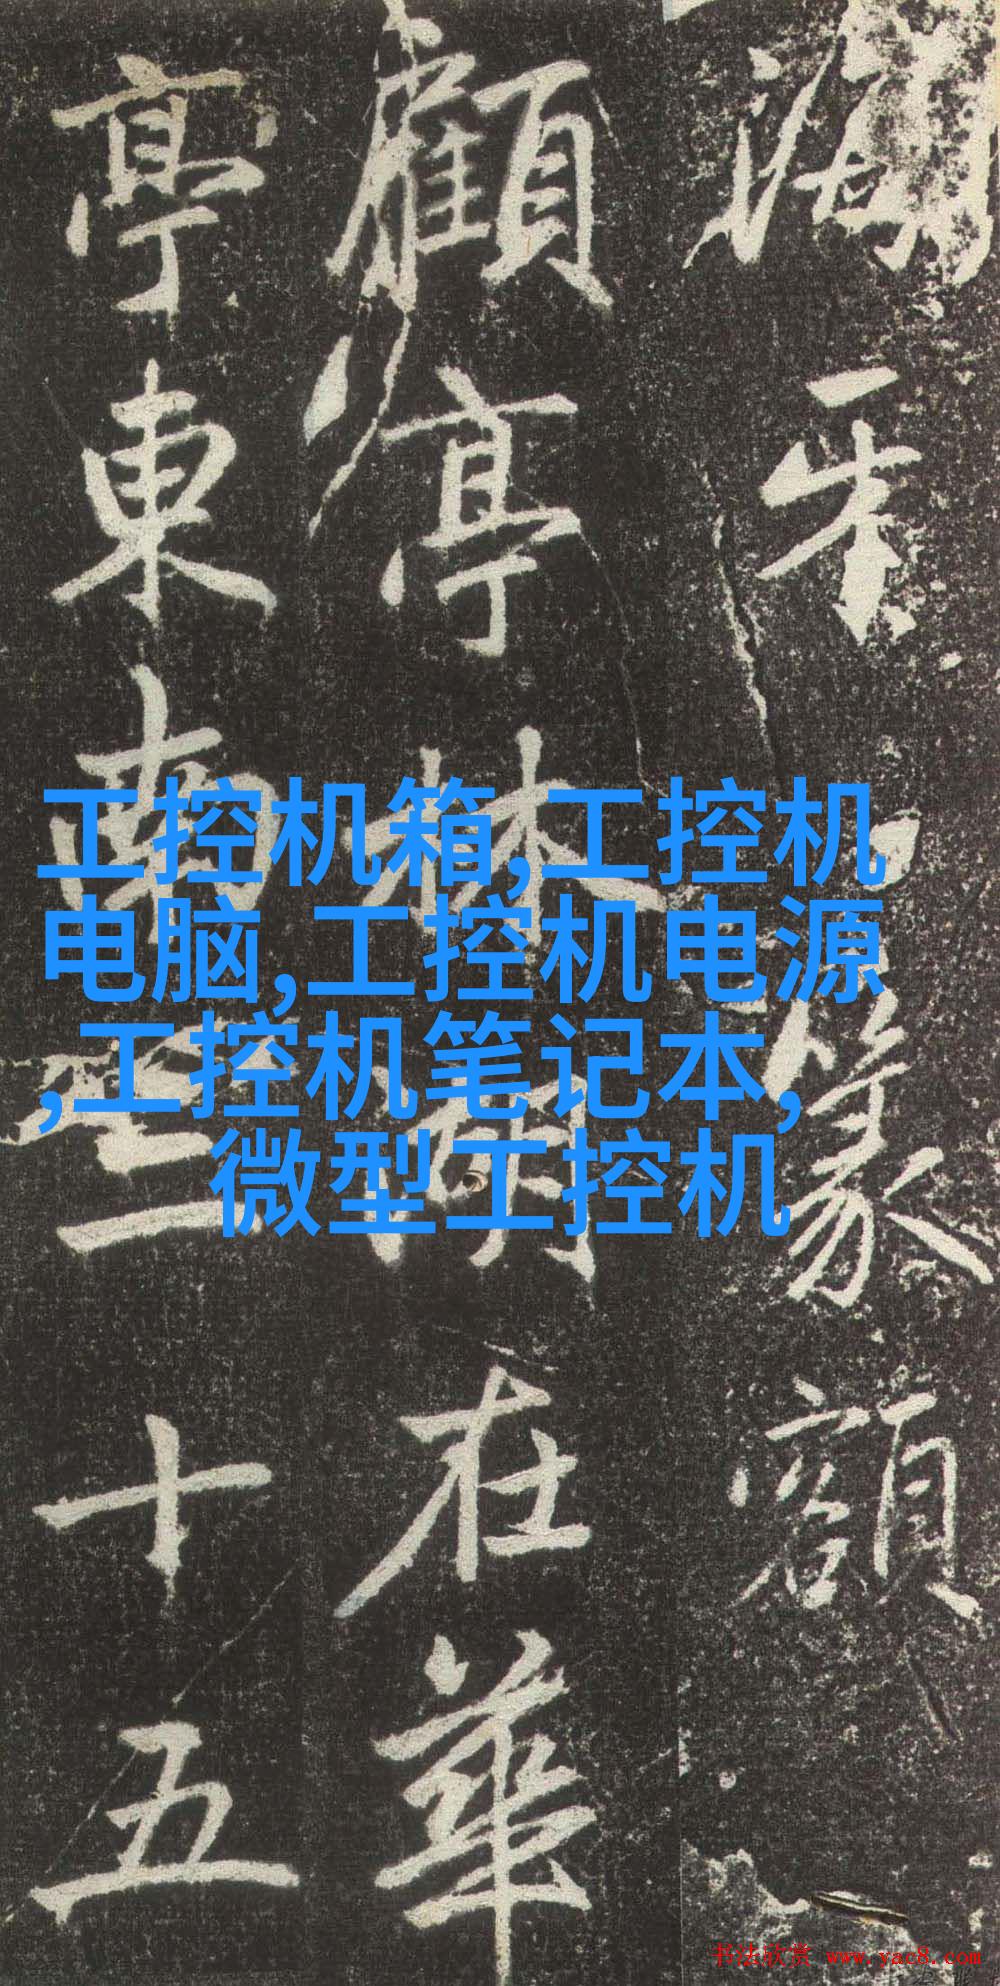 篆額
顧亭林湖在華
亭東南三十五
工控机箱,工控机
电脑,工控机电源
,工控机笔记本,
微型工控机
书法欣赏 www.yac8.com